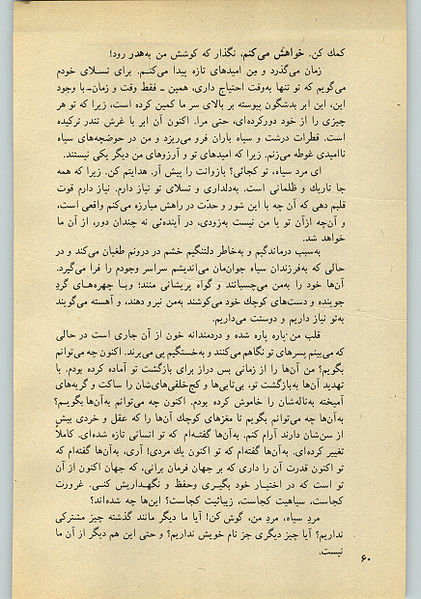 کمك کن. خواهش می‌کنم، نگذار که کوشش من به‌هدر رود!
زمان می‌گذرد و من امیدهای تازه پیدا می‌کنم. برای تسلای خودم
می‌گویم که تو تنها به‌وقت احتیاج داری، همین ـ فقط وقت و زمان ـ با وجود
این، این ابر بدشگون پیوسته بر بالای سر ما کمین کرده است، زیرا که تو هر
چیزی را از خود دورکرده‌ای، حتی مرا. اکنون آن ابر با غرش تندر ترکیده
است. قطرات درشت و سیاه باران فرو می‌ریزد و من در حوضچه‌های سیاه
ناامیدی غوطه می‌زنم. زیرا که امیدهای تو و آرزوهای من دیگر یکی نیستند.
ای مرد سیاه، تو کجائی؟ بازوانت را پیش آر. هدایتم کن. زیرا که همه
جا تاریك و ظلمانی است. به‌دلداری و تسلای تو نیاز دارم. نیاز دارم قوت
قلبم دهی که آن چه با این شور و حدّت در راهش مبارزه می‌کنم واقعی است،
و آن‌چه ازآن تو با من نیست به‌زودی، در آینده‌ئی نه چندان دور، از آن ما
خواهد شد.
به‌سبب درماندگیم و به‌خاطر دلتنگیم خشم در درونم طغیان می‌کند و در
حالی که به‌فرزندان سیاه جوان‌مان می‌اندیشم سراسر وجودم را فرا می‌گیرد.
آن‌ها خود را به‌من می‌چسبانند و گواه پریشانی منند؛ وبا چهره‌های گردِ
جوینده و دست‌های کوچك خود می‌کوشند به‌من نیرو دهند، و آهسته می‌گویند
به‌تو نیاز داریم و دوستت می‌داریم.
قلب من پاره پاره شده و دردمندانه خون از آن جاری است در حالی
که می‌بینم پسرهای تو نگاهم می‌کنند و به‌خستگیم پی می‌برند. اکنون چه می‌توانم
بگویم؟ من آن‌ها را از زمانی بس دراز برای بازگشت تو آماده کرده بودم. با
تهدید آن‌ها به‌بازگشت تو، بی‌تابی‌ها و کج‌خلقی‌های‌شان را ساکت و گریه‌های
آمیخته به‌ناله‌شان را خاموش کرده بودم. اکنون چه می‌توانم به‌آن‌ها بگویم؟
به‌آن‌ها چه می‌توانم بگویم تا مغزهای کوچك آن‌ها را که عقل و خردی بیش
از سن‌شان دارند آرام کنم. به‌آن‌ها گفته‌ام که تو انسانی تازه شده‌ای. کاملاً
تغییر کرده‌ای. به‌آن‌ها گفته‌ام که تو اکنون یك مردی! آری، به‌آن‌ها گفته‌ام که
تو اکنون قدرت آن را داری که بر جهان فرمان برانی، که جهان اکنون از آن
تو است که در اختیار خود بگیری وحفظ و نگهداریش کنی. غرورت
کجاست، سیاهیت کجاست، زیبائیت کجاست؟ این‌ها چه شده‌اند؟
مردِ سیاه، مردِ من، گوش کن! آیا ما دیگر مانند گذشته چیز مشترکی
نداریم؟ آیا چیز دیگری جز نام خویش نداریم؟ و حتی این هم دیگر از آن ما
نیست.
۶۰